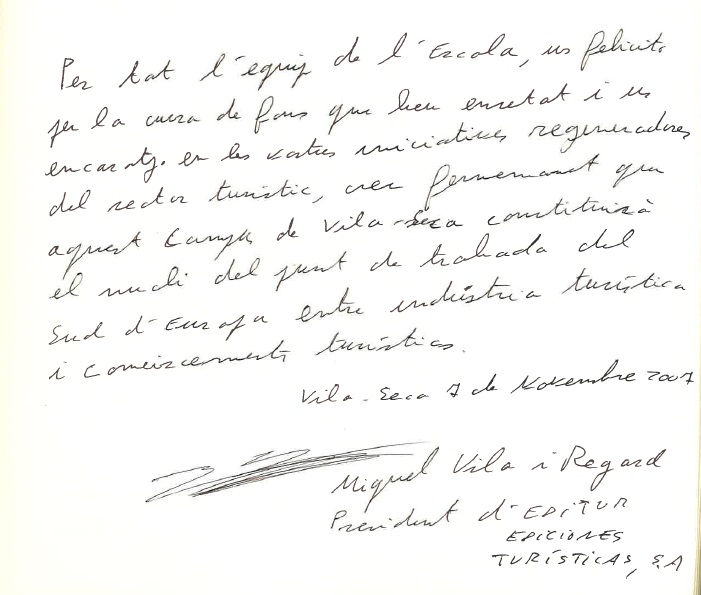 Per tot l'equip de l'Escola, us felicito
per la cursa de fons que heu encetat i us
encoratjo en les vostres iniciatives regeneradores
del sector turístic, crec fermemanet que
aquest Campus de Vila-Seca constituirà
el nucli del punt de trobada del
Sud d'Europa entre indústria turística
i coneixements turístics.
Vila-Seca 7 de Novembre 2007
Miquel Vila i Regard
President d'EDITUR
EDICIONES
TURÍSTICAS, S.A